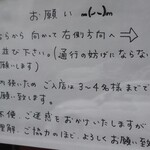 お願い m(_ _)m
ちらから 向かって 右側方向へ
並び下さい。(通行の妨げにならない
願いします)
の強いため ご入店は 3〜4名様までで
願い致します。
不便、ご迷惑をおかけいたしますが
理解、ご協力のほど、よろしくお願い致